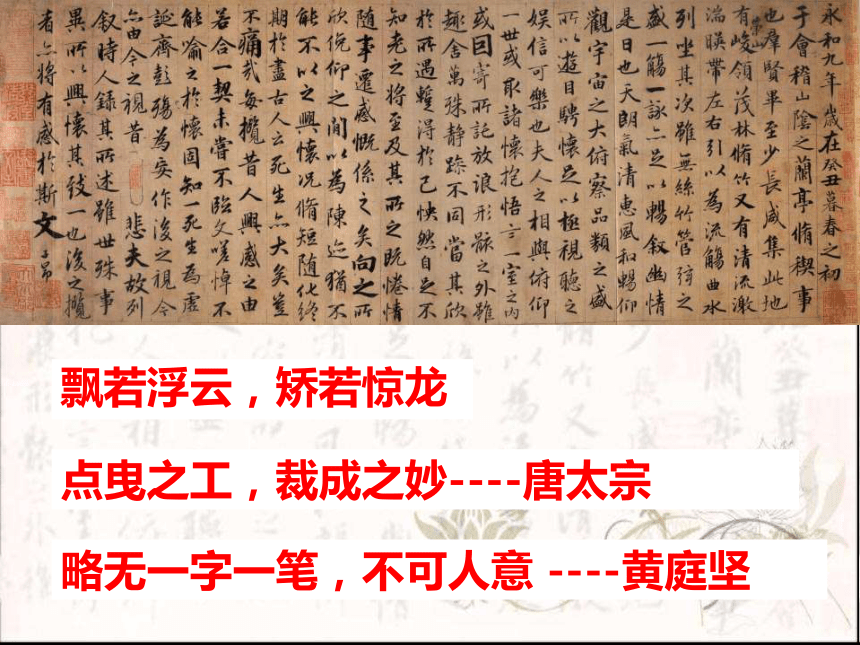 永和九年歲在癸丑暮春之初
于會稽山陰之蘭亭脩稧事
也羣賢畢至少長咸集此地
有崇山峻領茂林脩竹又有清流激
湍暎帶左右引以為流觴曲水
列坐其次雖無絲竹管弦之
盛一觴一詠亦足以暢敘幽情
是日也天朗氣清惠風和暢仰
觀宇宙之大俯察品類之盛
所以遊目騁懷足以極視聽之
娛信可樂也夫人之相與俯仰
一世或取諸懷抱悟言一室之內
或因寄所託放浪形骸之外雖
趣舍萬殊静躁不同當其欣
於所遇蹔得於己怏然自足不
知老之將至及其所之既惓情
隨事遷感慨係之矣向之所
欣俛仰之閒以為陳迹猶不
能不以之興懷況脩短隨化終
期於盡古人云死生亦大矣豈
不痛哉每攬昔人興感之由
若合一契未嘗不臨文嗟悼不
能喻之於懷固知一死生為虛
誕齊彭殤為妄作後之視今
亦由今之視昔 悲夫故列
敘時人錄其所述雖世殊事
異所以興懷其致一也後之攬
者亦將有感於斯文
飘若浮云，矫若惊龙
点曳之工，裁成之妙----唐太宗
略无一字一笔，不可人意 ----黄庭坚